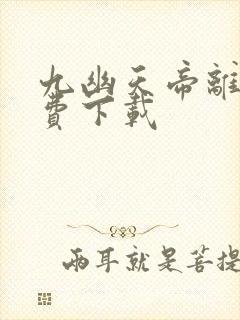 九幽天帝離
費下載
兩耳就是菩提